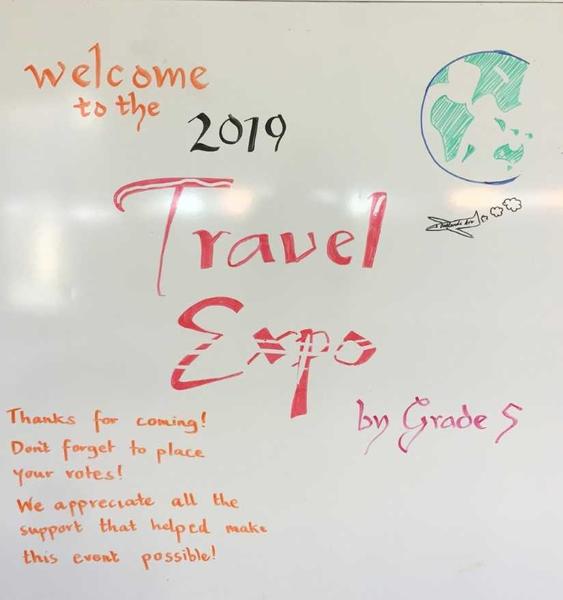 welcome
to the
2019
Travel
Expo
by Grade 5
Thanks for coming!
Don't forget to place
your votes!
We appreciate all the
support that helped make
this event possible!